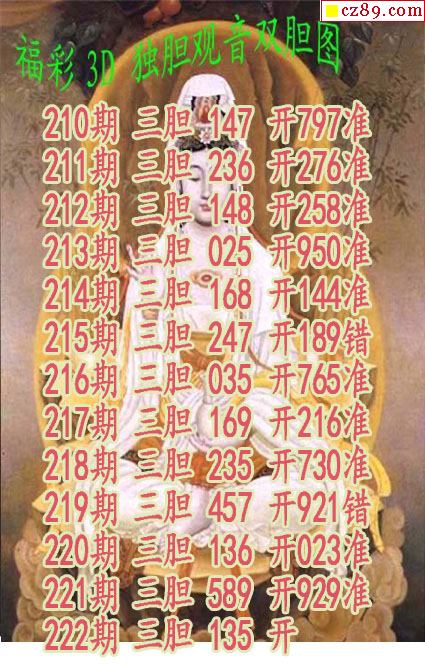 cz89.com
福彩 3D 独胆观音双胆图
210期 三胆 147 开797准
211期 三胆 236 开276准
212期 三胆 148 开258准
213期 三胆 025 开950准
214期 三胆 168 开144准
215期 三胆 247 开189错
216期 三胆 035 开765准
217期 三胆 169 开216准
218期 三胆 235 开730准
219期 三胆 457 开921错
220期 三胆 136 开023准
221期 三胆 589 开929准
222期 三胆 135 开